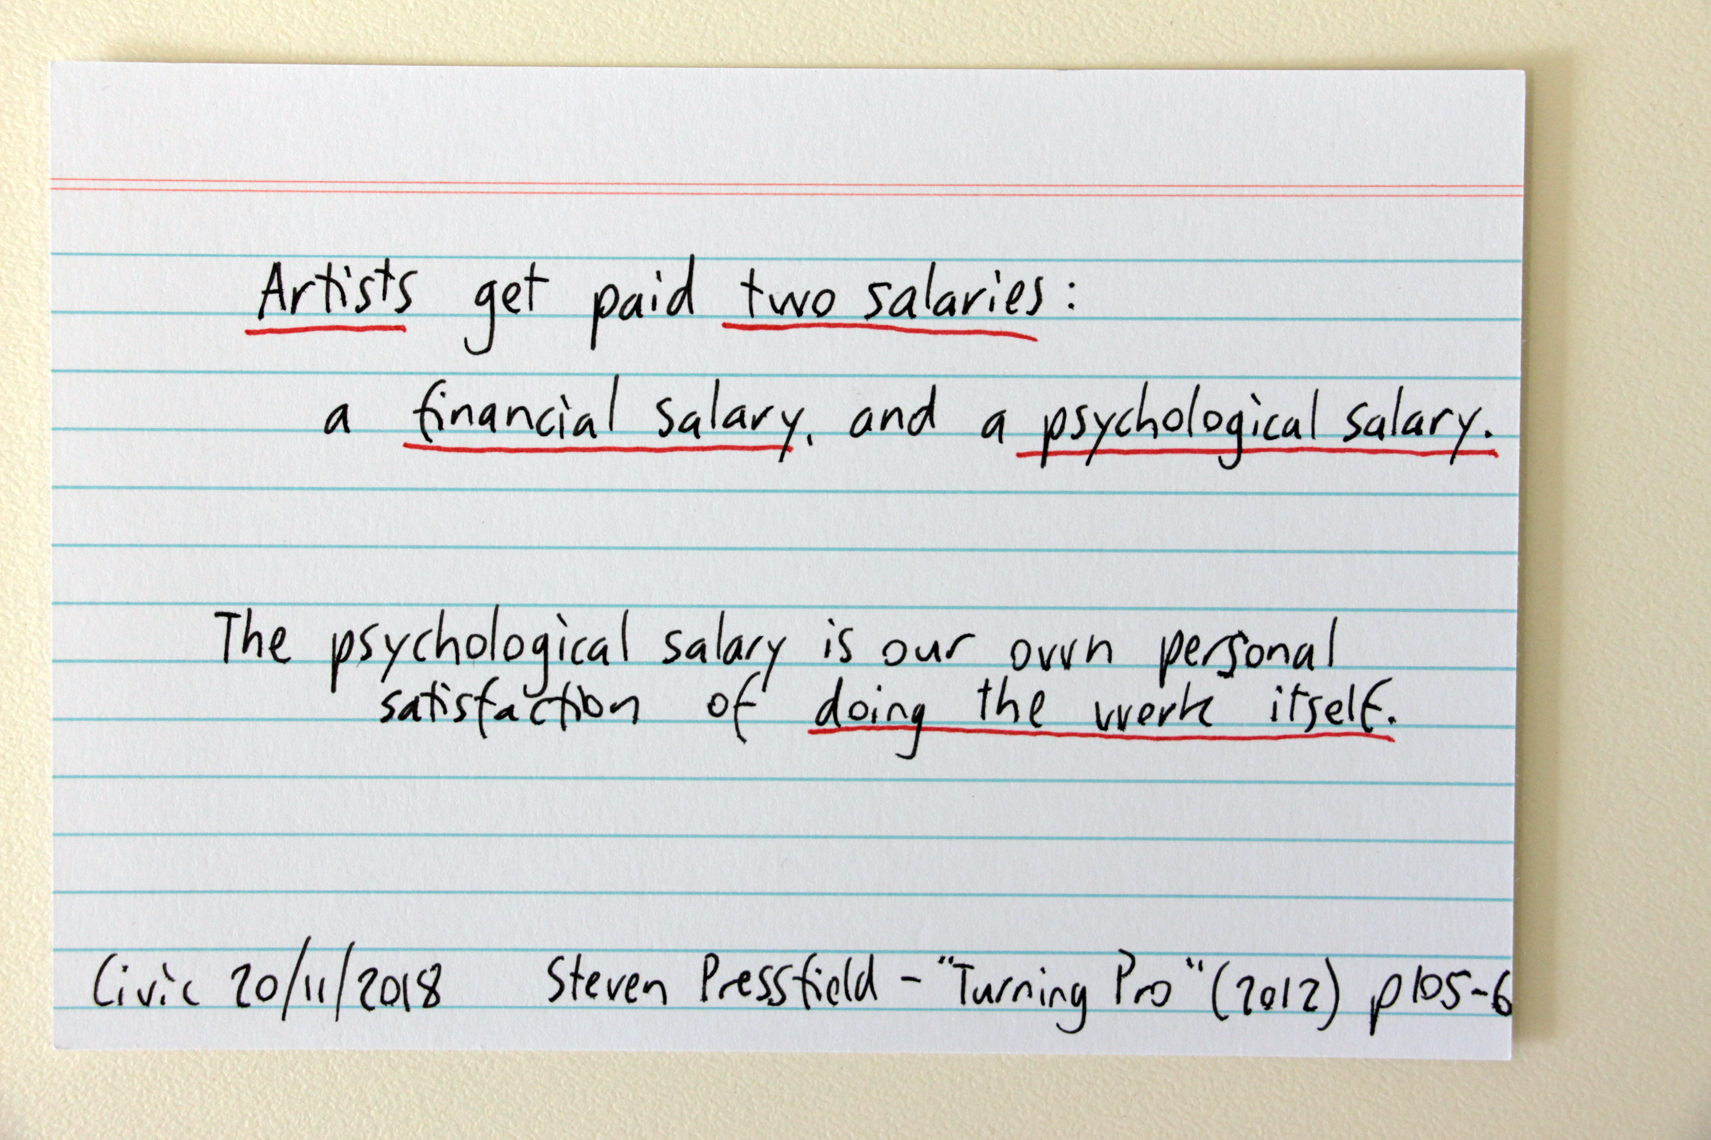 Artists get paid two salaries:
a financial salary, and a psychological salary.
The psychological salary is our own personal
satisfaction of doing the work itself.
Civic 20/11/2018 Steven Pressfield - "Turning Pro" (2012) p105-6